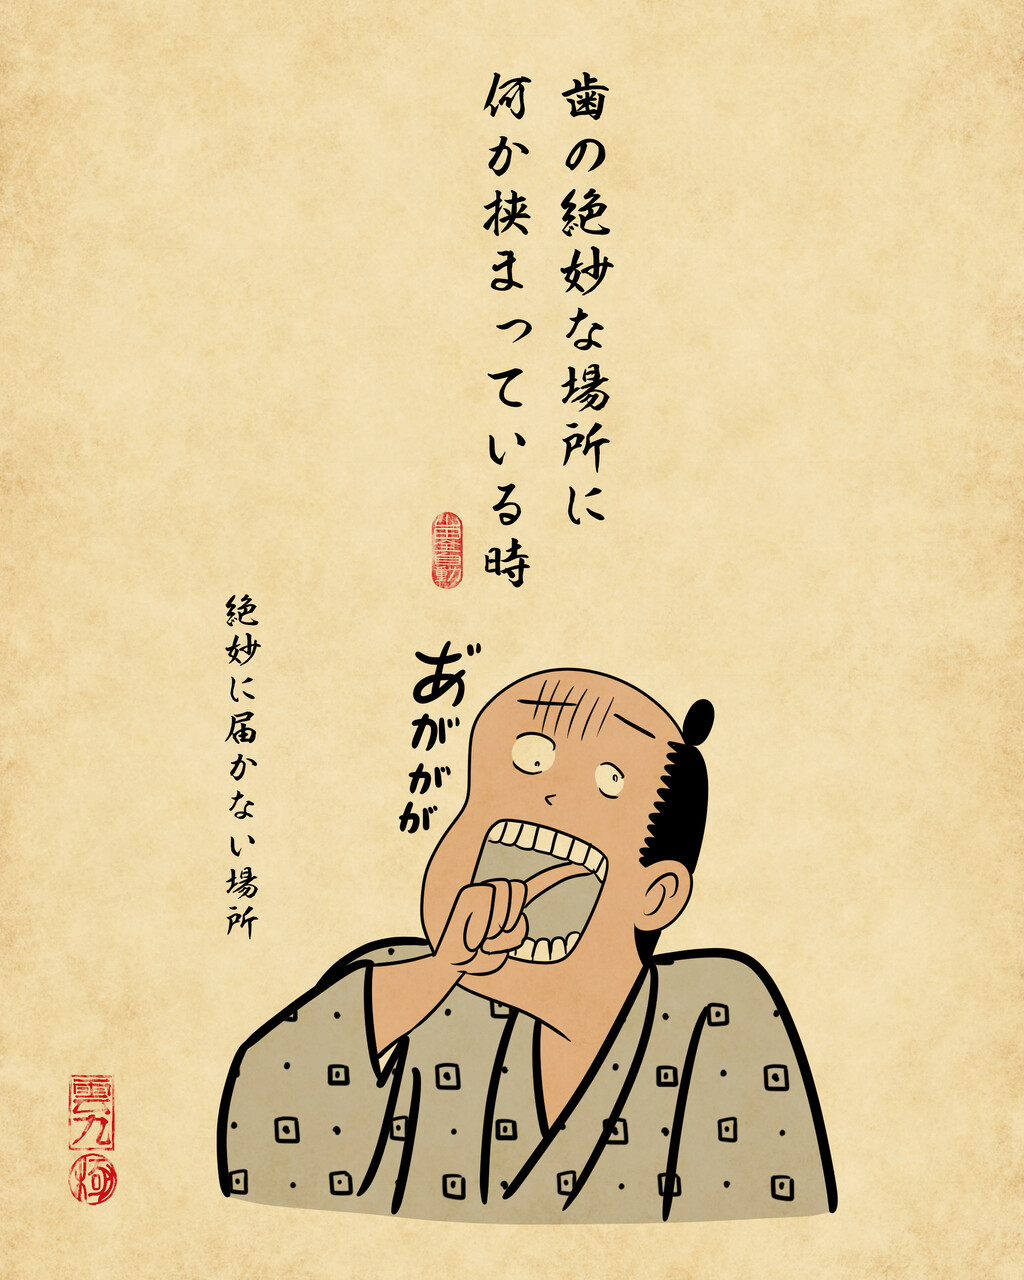 歯の絶妙な場所に
何か挟まっている時
あ゛がががが
絶妙に届かない場所